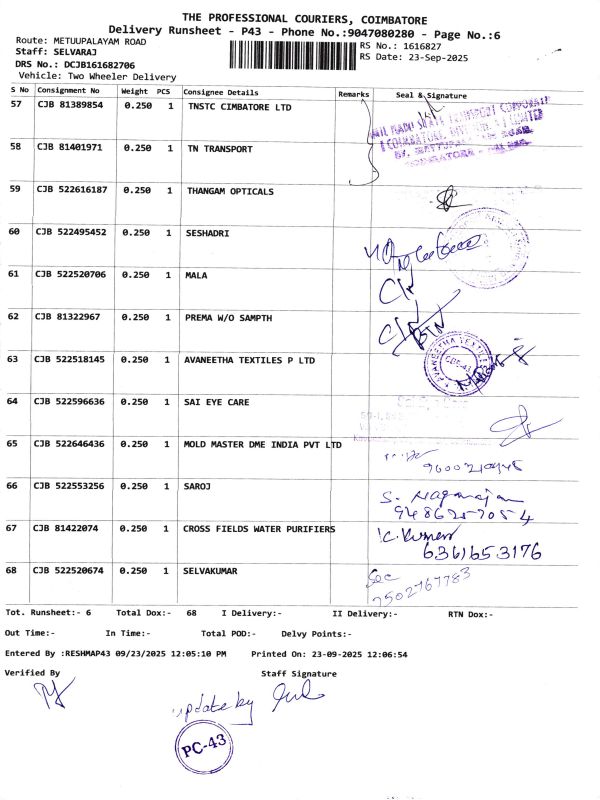 THE PROFESSIONAL COURIERS, COIMBATORE
Delivery Runsheet - P43 - Phone No.:9047080280 - Page No.:6
Route: METUUPALAYAM ROAD
RS No.: 1616827
Staff: SELVARAJ
RS Date: 23-Sep-2025
DRS No.: DCJB161682706
Vehicle: Two Wheeler Delivery
S No Consignment No Weight PCS Consignee Details Remarks Seal & Signature
57 CJB 81389854 0.250 1 TNSTC CIMBATORE LTD
58 CJB 81401971 0.250 1 TN TRANSPORT
59 CJB 522616187 0.250 1 THANGAM OPTICALS
60 CJB 522495452 0.250 1 SESHADRI
61 CJB 522520706 0.250 1 MALA
62 CJB 81322967 0.250 1 PREMA W/O SAMPTH
63 CJB 522518145 0.250 1 AVANEETHA TEXTILES P LTD
AVANEETHA TEXTILES
CBE-43
64 CJB 522596636 0.250 1 SAI EYE CARE
65 CJB 522646436 0.250 1 MOLD MASTER DME INDIA PVT LTD
66 CJB 522553256 0.250 1 SAROJ
S. Nagarajan
9486257054
67 CJB 81422074 0.250 1 CROSS FIELDS WATER PURIFIERS
K. Kumar
6361653176
68 CJB 522520674 0.250 1 SELVAKUMAR
Sec
7502767783
Tot. Runsheet:- 6 Total Dox:- 68 I Delivery:- II Delivery:- RTN Dox:-
Out Time:- In Time:- Total POD:- Delvy Points:-
Entered By :RESHMAP43 09/23/2025 12:05:10 PM Printed On: 23-09-2025 12:06:54
Verified By Staff Signature
update by
PC-43